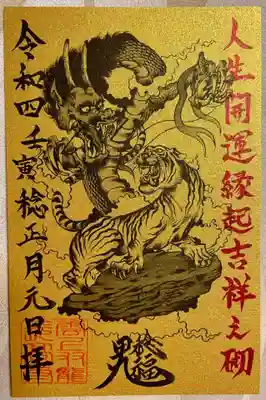 人生開運縁起吉祥之砌
令和四壬寅稔正月元日拝